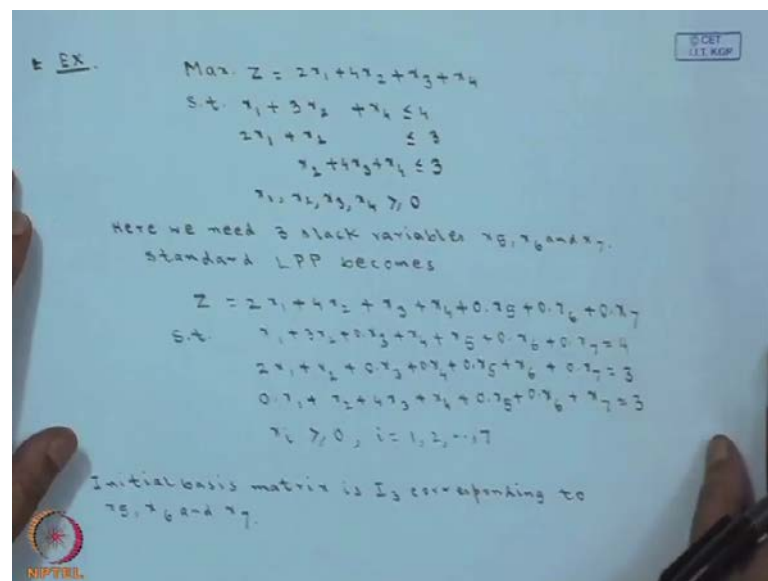 EX.
© CET
I.I.T. KGP
Max. Z = 2x₁ + 4x₂ + x₃ + x₄
S.t. x₁ + 3x₂ + x₄ ≤ 4
2x₁ + x₂ ≤ 3
x₂ + 4x₃ + x₄ ≤ 3
x₁, x₂, x₃, x₄ ≥ 0
Here we need 3 slack variables x5, x6 and x7.
standard LPP becomes
Z = 2x₁ + 4x₂ + x₃ + x₄ + 0.x5 + 0.x6 + 0.x7
S.t. x₁ + 3x₂ + 0.x₃ + x₄ + x5 + 0.x6 + 0.x7 = 4
2x₁ + x₂ + 0.x₃ + 0x₄ + 0.x5 + x6 + 0.x7 = 3
0.x₁ + x₂ + 4x₃ + x₄ + 0.x5 + 0.x6 + x7 = 3
xᵢ ≥ 0, i = 1, 2, ..., 7
Initial basis matrix is I₃ corresponding to
x5, x6 and x7.
NPTEL